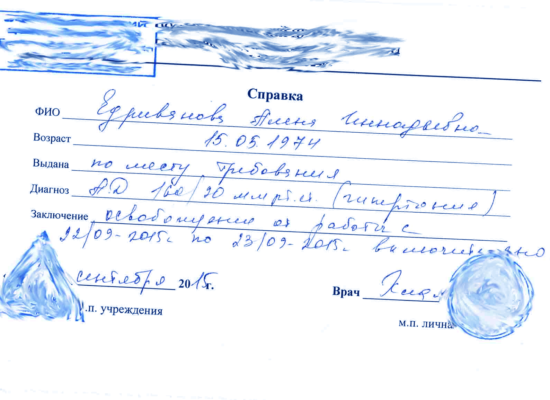 Справка
ФИО Едривянова Алена Геннадьевна
Возраст 15.05.1974
Выдана по месту требования
Диагноз А.Д 160/90 мм рт.ст. (гипертония)
Заключение освобождение от работы с
22/09-2015г. по 23/09-2015г. включительно
сентября 2015г.
Врач
м.п. учреждения
м.п. личная